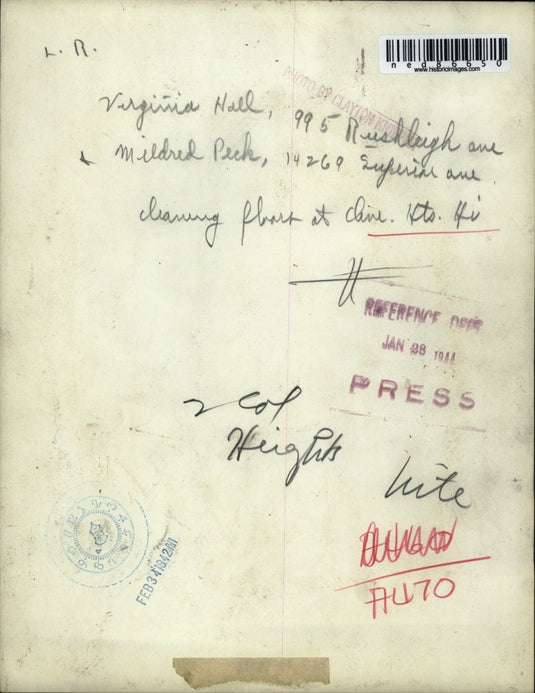 L. R.
ned86650
www.historicimages.com
PHOTO BY CLAYTON
Virginia Hill, 995 Rushleigh ave
Mildred Peck, 14269 Superior ave.
cleaning floors at Cleve. Hts. Hi
REFERENCE DEPT
JAN 28 1944
PRESS
2 Col
Heights
Nite
AUTO